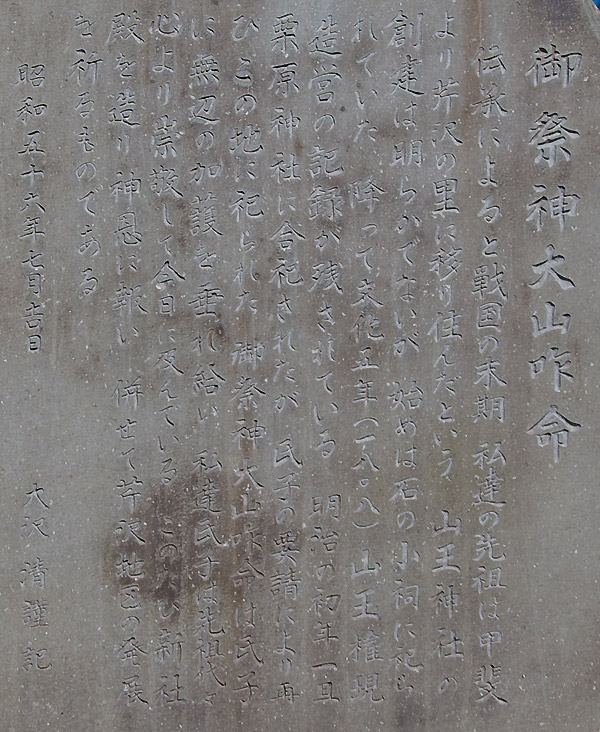 御祭神大山咋命
伝承によると戦国の末期 私達の先祖は甲斐
より芹沢の里に移り住んだという、山王神社の
創建は明らかでないが 始めは石の小祠に祀ら
れていた 降って文化五年(一八〇八)山王権現
造営の記録が残されている 明治の初年一旦
栗原神社に合祀されたが 氏子の要請により再
ひこの地に祀られた 御祭神大山咋命は氏子
に無辺の加護を垂れ給い 私達氏子は先祖代々
心より崇敬して今日に及んでいる このたび新社
殿を造り神恩に報い 併せて芹沢地区の発展
を祈るものである
昭和五十六年七月吉日 大沢清謹記